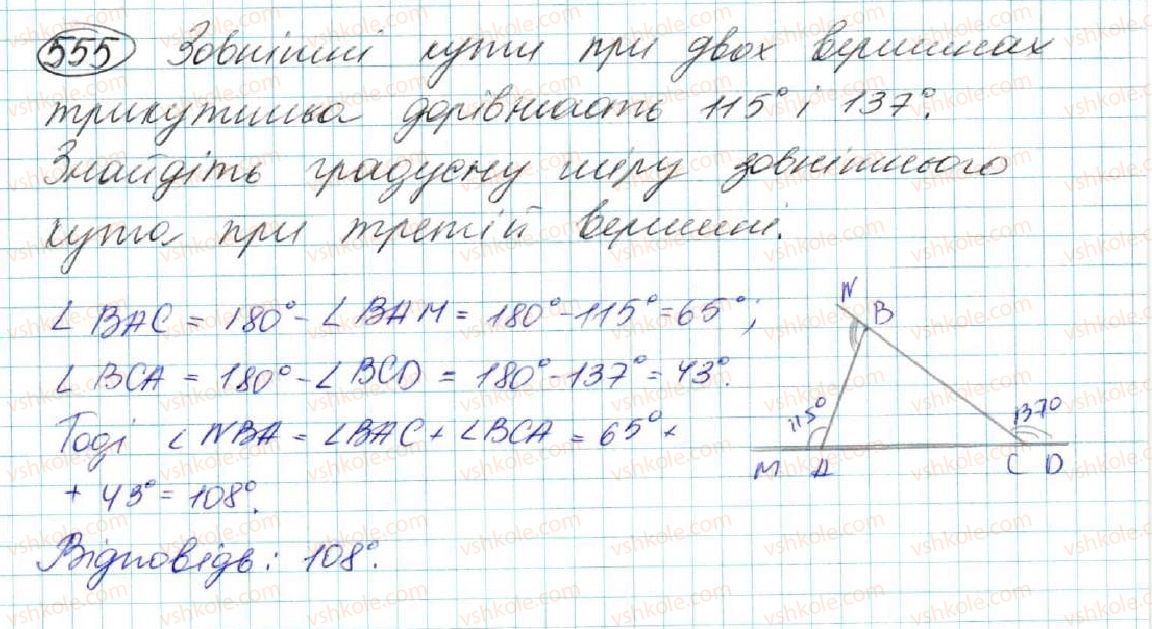 555 Зовнішні кути при двох вершинах
трикутника дорівнюють 115° і 137°.
Знайдіть градусну міру зовнішнього
кута при третій вершині.
∠ BAC = 180° - ∠ BAM = 180° - 115° = 65°;
∠ BCA = 180° - ∠ BCD = 180° - 137° = 43°.
Тоді ∠ NBA = ∠ BAC + ∠ BCA = 65° +
+ 43° = 108°.
Відповідь: 108°.
N
B
115°
137°
M A C D
vshkole.com